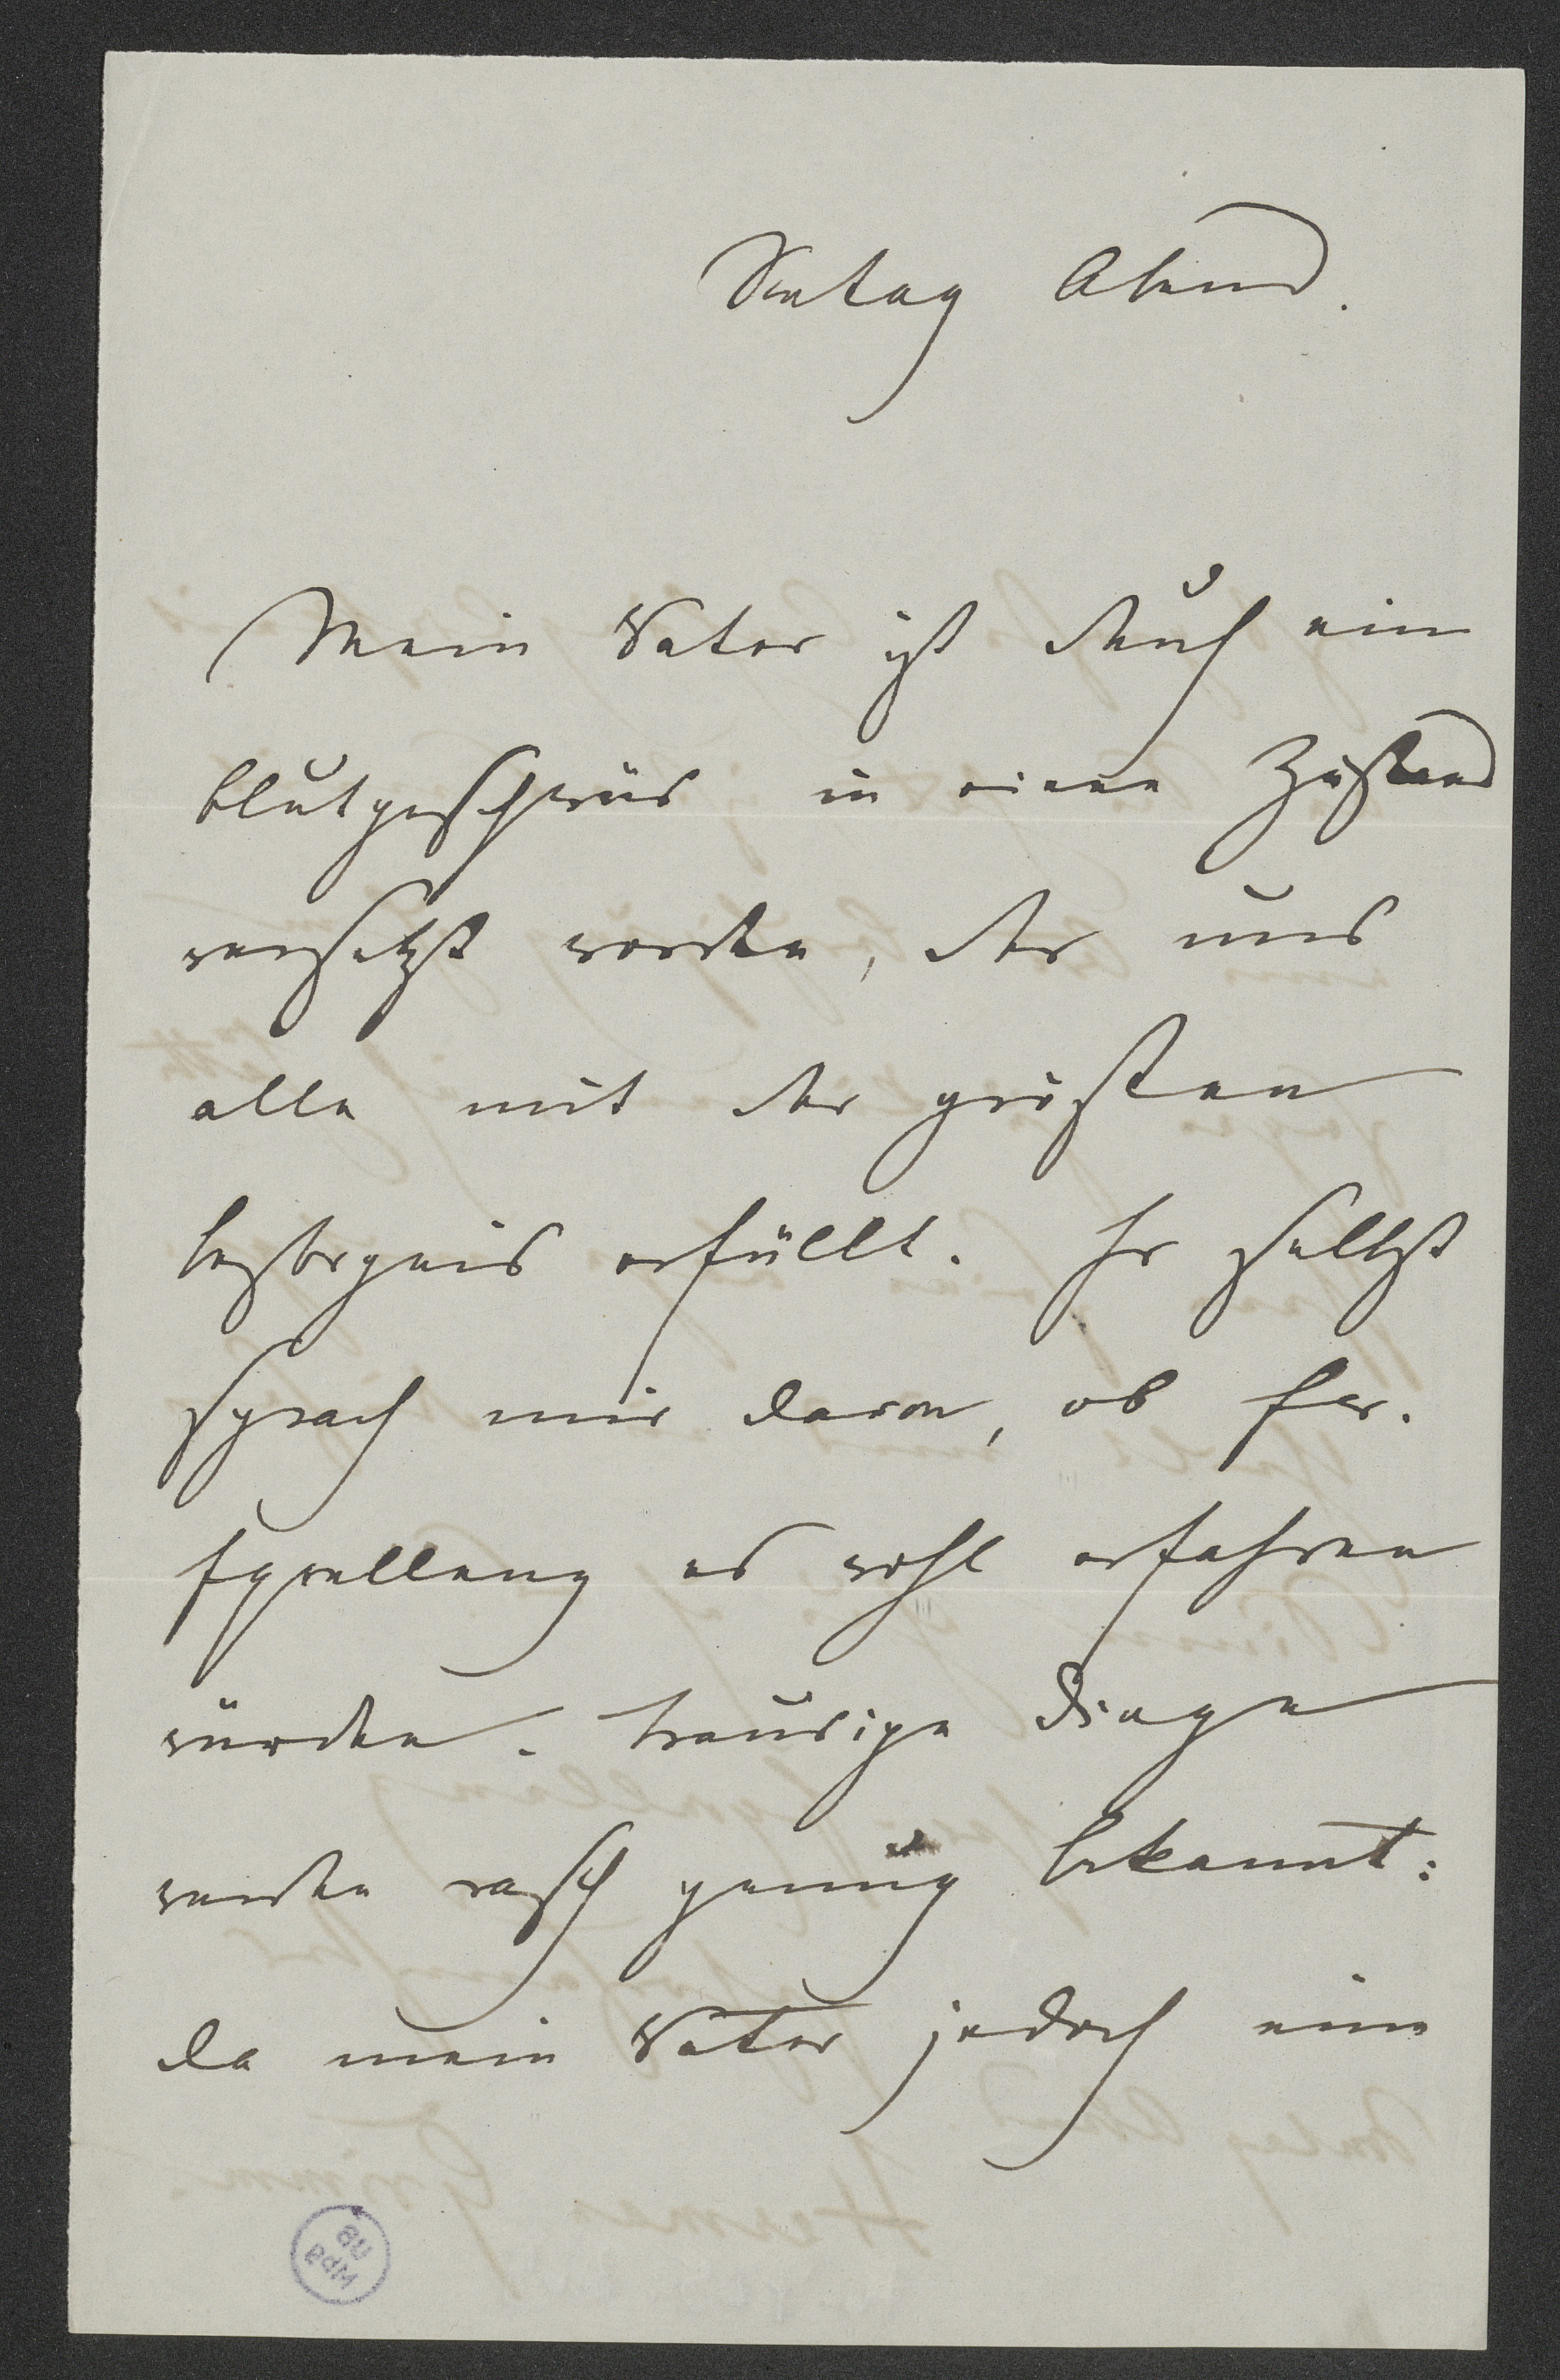 Sontag Abend.
Mein Vater ist durch ein
blutgeschwür in einen Zustand
versetzt worden, der uns
alle mit der grösten
besorgnis erfüllt. Er selbst
sprach mir davon, ob Ew.
Excellenz es wohl erfahren
würden. traurige Dinge
werden rasch genug bekannt:
da mein Vater jedoch eine